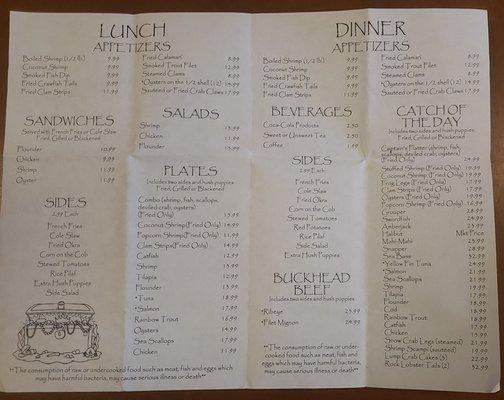 LUNCH
APPETIZERS
Boiled Shrimp (1/2 lb) 9.99
Coconut Shrimp 9.99
Smoked Fish Dip 9.99
Fried Crawfish Tails 9.99
Fried Clam Strips 11.99
Fried Calamari 8.99
Smoked Trout Filet 12.99
Steamed Clams 8.99
*Oysters on the 1/2 shell (12) 14.99
Sautéed or Fried Crab Claws 17.99
SANDWICHES
Served with French Fries or Cole Slaw
Fried, Grilled or Blackened
Flounder 10.99
Chicken 9.99
Shrimp 11.99
Oyster 11.99
SIDES
2.99 Each
French Fries
Cole Slaw
Fried Okra
Corn on the Cob
Stewed Tomatoes
Rice Pilaf
Extra Hush Puppies
Side Salad
SALADS
Shrimp 13.99
Chicken 11.99
Flounder 13.99
PLATES
Includes two sides and hush puppies
Fried, Grilled or Blackened
Combo (shrimp, fish, scallops,
deviled crab, oysters)
(Fried Only) 13.99
Coconut Shrimp (Fried Only) 14.99
Popcorn Shrimp (Fried Only) 11.99
Clam Strips (Fried Only) 14.99
Catfish 12.99
Shrimp 13.99
Tilapia 12.99
Flounder 13.99
*Tuna 18.99
*Salmon 17.99
Rainbow Trout 16.99
Oysters 14.99
Sea Scallops 17.99
Chicken 11.99
**The consumption of raw or undercooked food such as meat, fish and eggs which
may have harmful bacteria, may cause serious illness or death**
DINNER
APPETIZERS
Boiled Shrimp (1/2 lb) 9.99
Coconut Shrimp 9.99
Smoked Fish Dip 9.99
Fried Crawfish Tails 9.99
Fried Clam Strips 11.99
Fried Calamari 8.99
Smoked Trout Filet 12.99
Steamed Clams 8.99
*Oysters on the 1/2 shell (12) 14.99
Sautéed or Fried Crab Claws 17.99
BEVERAGES
Coca-Cola Products 2.50
Sweet or Unsweet Tea 2.50
Coffee 1.99
SIDES
2.99 Each
French Fries
Cole Slaw
Fried Okra
Corn on the Cob
Stewed Tomatoes
Red Potatoes
Rice Pilaf
Side Salad
Extra Hush Puppies
BUCKHEAD
BEEF
Includes two sides and hush puppies
*Ribeye 23.99
*Filet Mignon 24.99
**The consumption of raw or under-
cooked food such as meat, fish and
eggs which may have harmful bacteria,
may cause serious illness or death**
CATCH OF
THE DAY
Includes two sides and hush puppies
Fried, Grilled or Blackened
Captain's Platter (shrimp, fish,
scallops, deviled crab, oysters)
(Fried Only) 24.99
Stuffed Shrimp (Fried Only) 19.99
Coconut Shrimp (Fried Only) 19.99
Frog Legs (Fried Only) 17.99
Clam Strips (Fried Only) 17.99
Oysters (Fried Only) 19.99
Popcorn Shrimp (Fried Only) 16.99
Grouper 28.99
Swordfish 24.99
Amberjack 23.99
Halibut Mkt Price
Mahi-Mahi 23.99
Snapper 28.99
Sea Bass 32.99
*Yellow Fin Tuna 24.99
*Salmon 21.99
Sea Scallops 21.99
Shrimp
Tilapia
Flounder 18.99
Cod 18.99
Rainbow Trout
Catfish
Chicken
Snow Crab Legs (steamed)
Shrimp Scampi (sautéed)
Lump Crab Cakes (3) 22.99
Rock Lobster Tails (2) 32.99